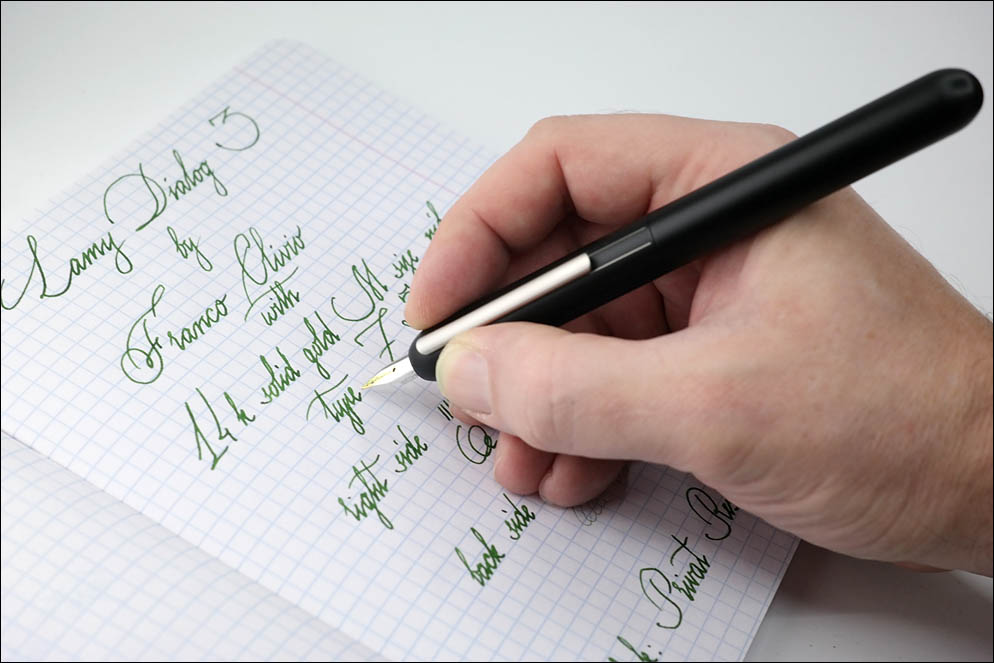 Lamy Dialog 3
by
Franco Clivio
with
14k solid gold M size
type
right side
back side
Privat